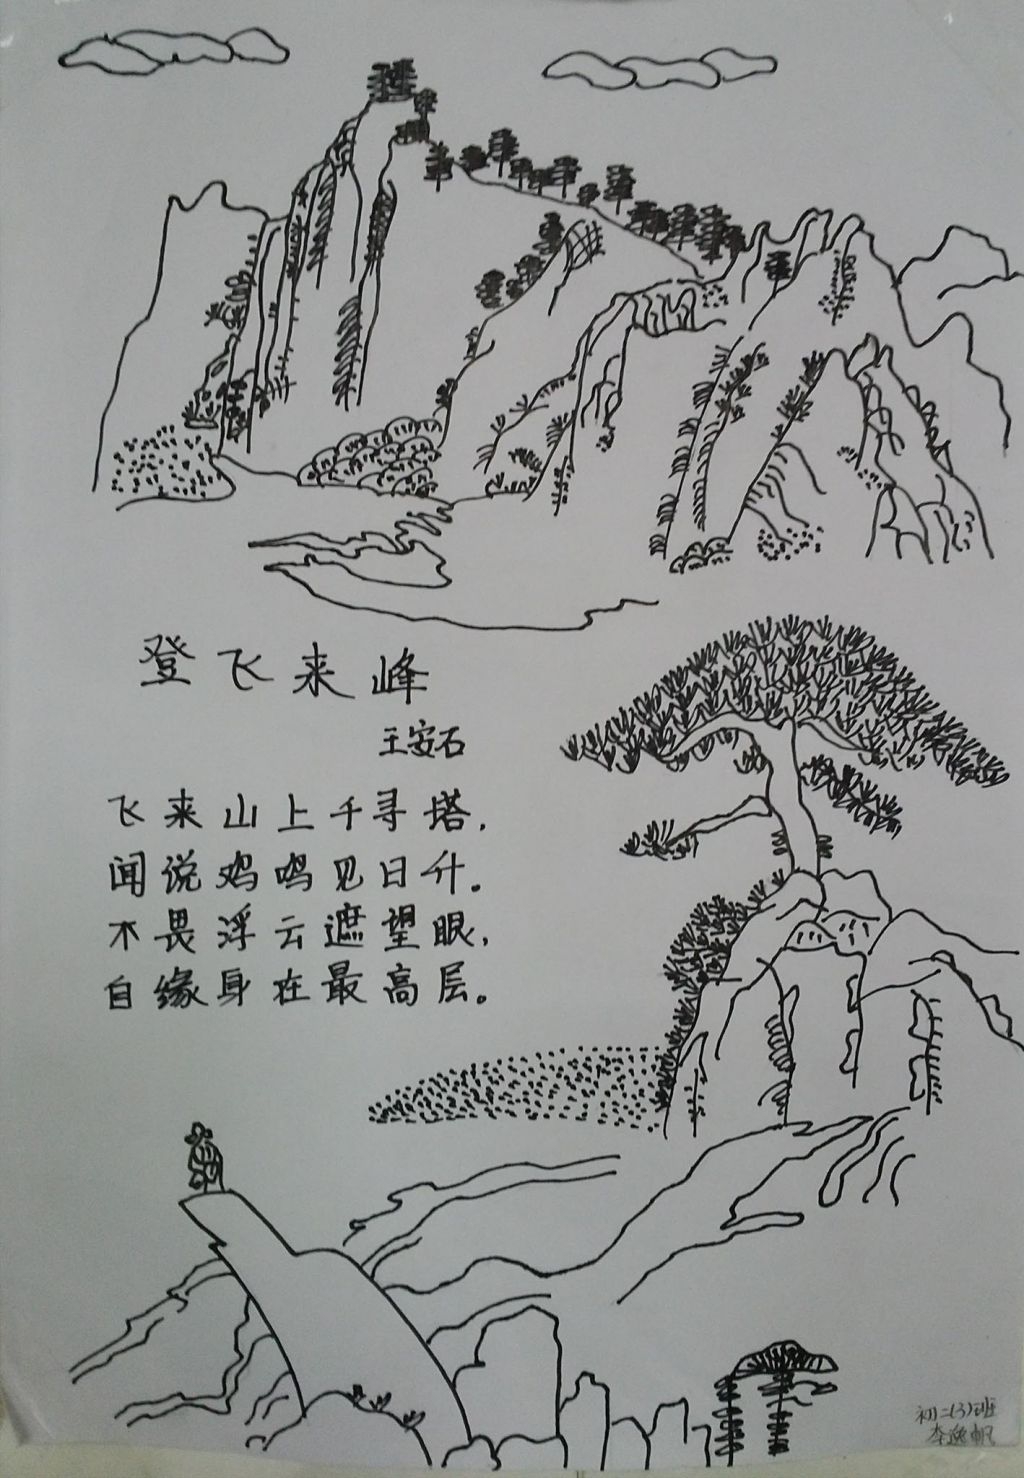 登飞来峰
王安石
飞来山上千寻塔，
闻说鸡鸣见日升。
不畏浮云遮望眼，
自缘身在最高层。
初二(3)班
李逸帆